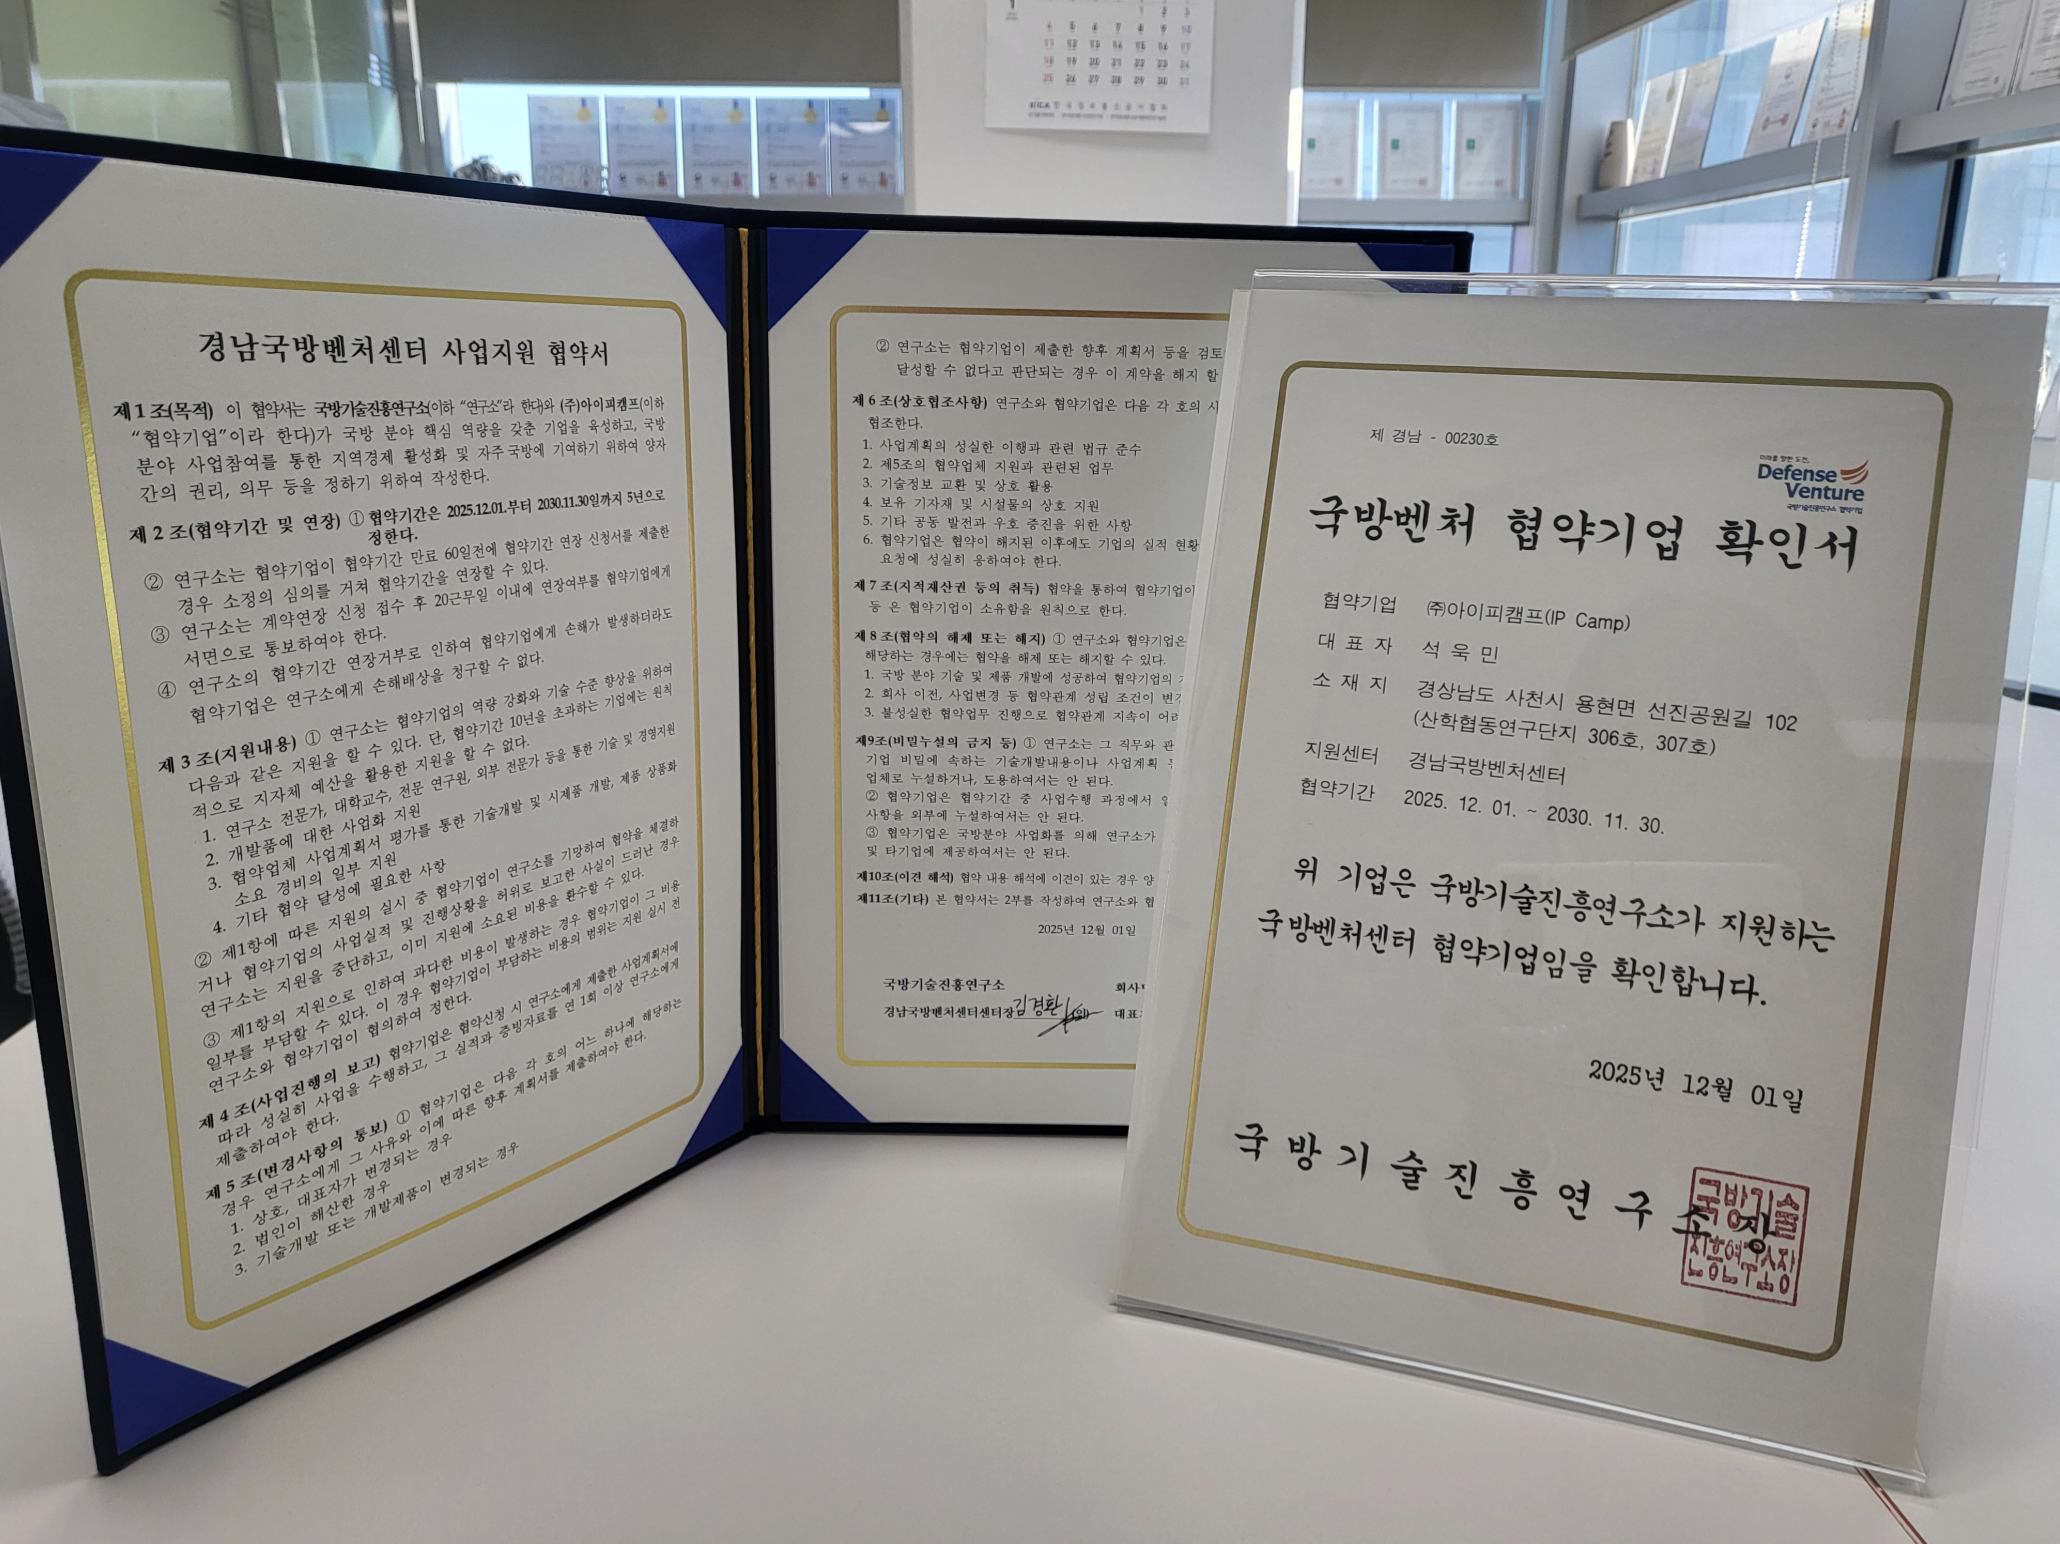 경남국방벤처센터 사업지원 협약서
제 1 조(목적) 이 협약서는 국방기술진흥연구소(이하 "연구소"라 한다)와 (주)아이피캠프(이하
"협약기업"이라 한다)가 국방 분야 핵심 역량을 갖춘 기업을 육성하고, 국방
분야 사업참여를 통한 지역경제 활성화 및 자주국방에 기여하기 위하여 양자
간의 권리, 의무 등을 정하기 위하여 작성한다.
제 2 조(협약기간 및 연장) ① 협약기간은 2025.12.01.부터 2030.11.30일까지 5년으로
정한다.
② 연구소는 협약기업이 협약기간 만료 60일전에 협약기간 연장 신청서를 제출한
경우 소정의 심의를 거쳐 협약기간을 연장할 수 있다.
③ 연구소는 계약연장 신청 접수 후 20근무일 이내에 연장여부를 협약기업에게
서면으로 통보하여야 한다.
④ 연구소의 협약기간 연장거부로 인하여 협약기업에게 손해가 발생하더라도
협약기업은 연구소에게 손해배상을 청구할 수 없다.
제 3 조(지원내용) ① 연구소는 협약기업의 역량 강화와 기술 수준 향상을 위하여
다음과 같은 지원을 할 수 있다. 단, 협약기간 10년을 초과하는 기업에는 원칙
적으로 지자체 예산을 활용한 지원을 할 수 없다.
1. 연구소 전문가, 대학교수, 전문 연구원, 외부 전문가 등을 통한 기술 및 경영지원
2. 개발품에 대한 사업화 지원
3. 협약업체 사업계획서 평가를 통한 기술개발 및 시제품 개발, 제품 상품화
소요 경비의 일부 지원
4. 기타 협약 달성에 필요한 사항
② 제1항에 따른 지원의 실시 중 협약기업이 연구소를 기망하여 협약을 체결하
거나 협약기업의 사업실적 및 진행상황을 허위로 보고한 사실이 드러난 경우
연구소는 지원을 중단하고, 이미 지원에 소요된 비용을 환수할 수 있다.
③ 제1항의 지원으로 인하여 과다한 비용이 발생하는 경우 협약기업이 그 비용
일부를 부담할 수 있다. 이 경우 협약기업이 부담하는 비용의 범위는 지원 실시 전
연구소와 협약기업이 협의하여 정한다.
제 4 조(사업진행의 보고) 협약기업은 협약신청 시 연구소에게 제출한 사업계획서에
따라 성실히 사업을 수행하고, 그 실적과 증빙자료를 연 1회 이상 연구소에게
제출하여야 한다.
제 5 조(변경사항의 통보) ① 협약기업은 다음 각 호의 어느 하나에 해당하는
경우 연구소에게 그 사유와 이에 따른 향후 계획서를 제출하여야 한다.
1. 상호, 대표자가 변경되는 경우
2. 법인이 해산한 경우
3. 기술개발 또는 개발제품이 변경되는 경우
② 연구소는 협약기업이 제출한 향후 계획서 등을 검토
달성할 수 없다고 판단되는 경우 이 계약을 해지 할
제 6 조(상호협조사항) 연구소와 협약기업은 다음 각 호의 사
협조한다.
1. 사업계획의 성실한 이행과 관련 법규 준수
2. 제5조의 협약업체 지원과 관련된 업무
3. 기술정보 교환 및 상호 활용
4. 보유 기자재 및 시설물의 상호 지원
5. 기타 공동 발전과 우호 증진을 위한 사항
6. 협약기업은 협약이 해지된 이후에도 기업의 실적 현황
요청에 성실히 응하여야 한다.
제 7 조(지적재산권 등의 취득) 협약을 통하여 협약기업이
등 은 협약기업이 소유함을 원칙으로 한다.
제 8 조(협약의 해제 또는 해지) ① 연구소와 협약기업은
해당하는 경우에는 협약을 해제 또는 해지할 수 있다.
1. 국방 분야 기술 및 제품 개발에 성공하여 협약기업의
2. 회사 이전, 사업변경 등 협약관계 성립 조건이 변경
3. 불성실한 협약업무 진행으로 협약관계 지속이 어려
제9조(비밀누설의 금지 등) ① 연구소는 그 직무와 관
기업 비밀에 속하는 기술개발내용이나 사업계획
업체로 누설하거나, 도용하여서는 안 된다.
② 협약기업은 협약기간 중 사업수행 과정에서
사항을 외부에 누설하여서는 안 된다.
③ 협약기업은 국방분야 사업화를 의해 연구소가
및 타기업에 제공하여서는 안 된다.
제10조(이견 해석) 협약 내용 해석에 이견이 있는 경우 양
제11조(기타) 본 협약서는 2부를 작성하여 연구소와 협
2025년 12월 01일
국방기술진흥연구소 회사
경남국방벤처센터센터장 김경환 (인) 대표
제 경남 - 00230호
미래를 향한 도전,
Defense
Venture
국방기술진흥연구소 협약기업
국방벤처 협약기업 확인서
협약기업 ㈜아이피캠프(IP Camp)
대 표 자 석 욱 민
소 재 지 경상남도 사천시 용현면 선진공원길 102
(산학협동연구단지 306호, 307호)
지원센터 경남국방벤처센터
협약기간 2025. 12. 01. ~ 2030. 11. 30.
위 기업은 국방기술진흥연구소가 지원하는
국방벤처센터 협약기업임을 확인합니다.
2025년 12월 01일
국 방 기 술 진 흥 연 구 소 장
국방기술
진흥연구소장